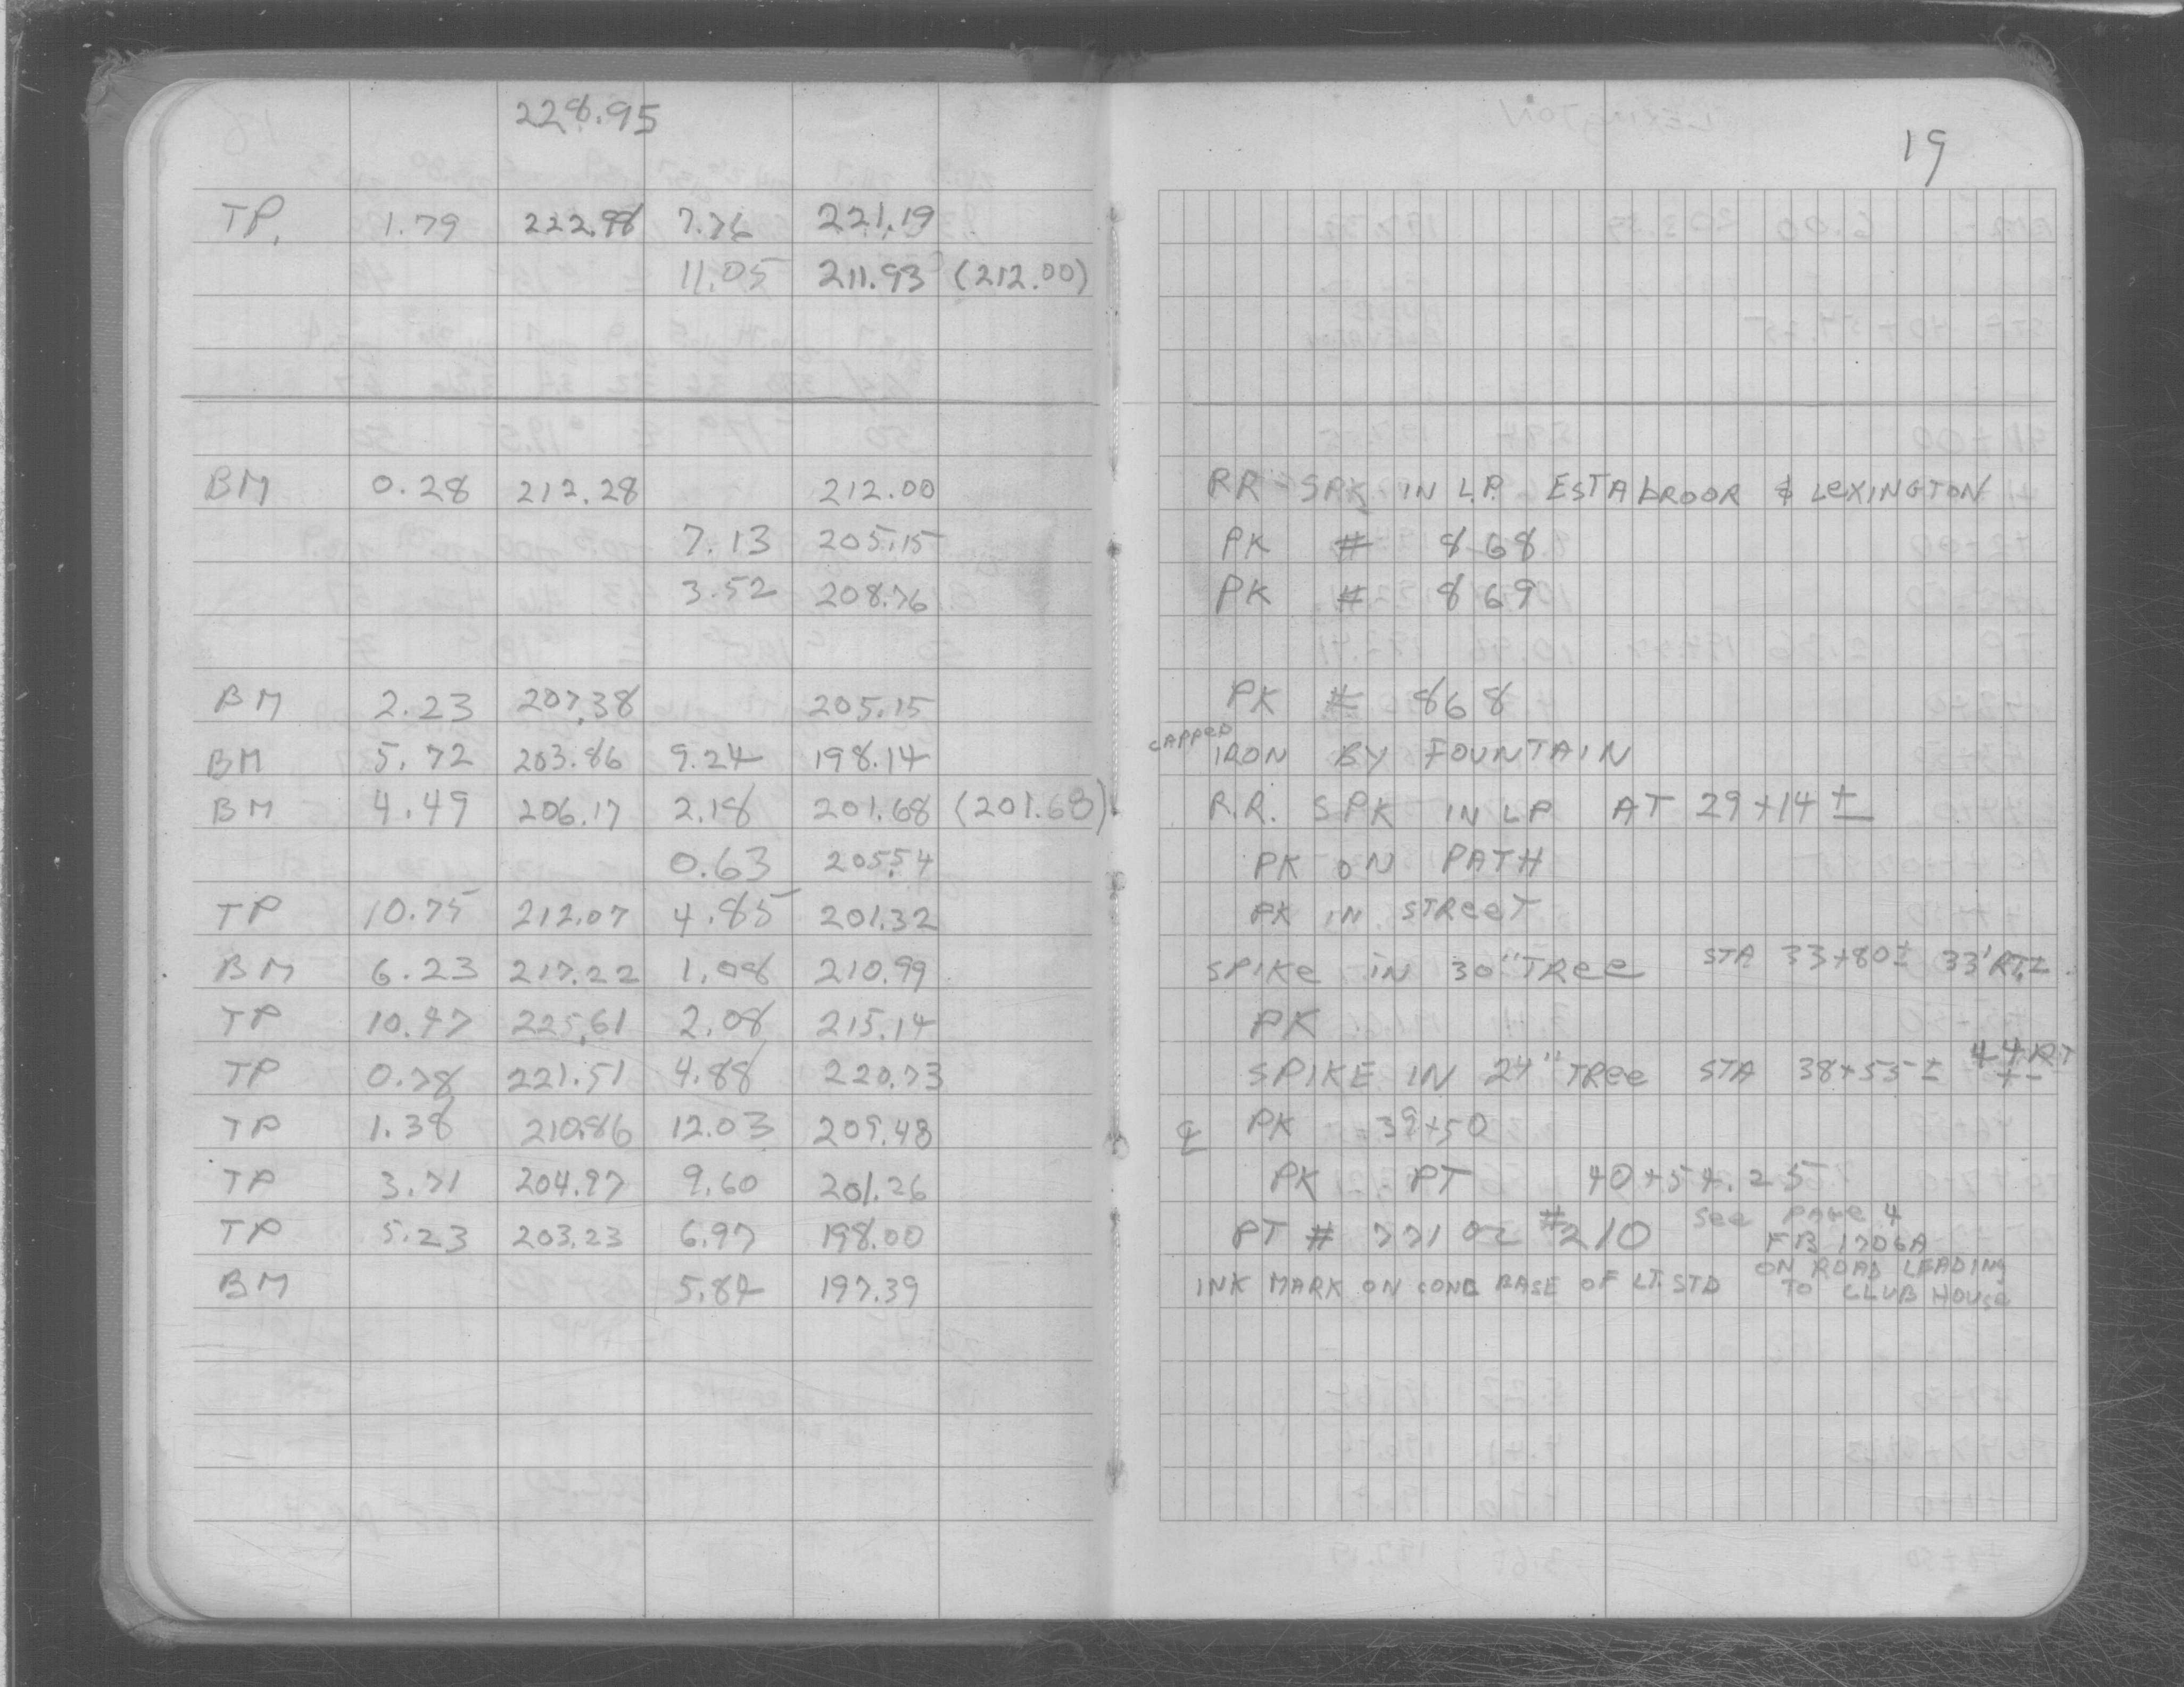 228.95
19
TP. 1.79 222.98 7.76 221.19
11.05 211.93 (212.00)
BM 0.28 212.28 212.00 RR SPK IN L.P. ESTAbROOR & LeXINGTON
7.13 205.15 PK # 868
3.52 208.76 PK # 869
BM 2.23 207.38 205.15 PK # 868
BM 5.72 203.86 9.24 198.14 CAPPeD IRON BY FOUNTAIN
BM 4.49 206.17 2.18 201.68 (201.68) R.R. SPK IN LP AT 29+14 ±
0.63 205.54 PK ON PATH
TP 10.75 212.07 4.85 201.32 PK IN STReeT
BM 6.23 217.22 1.08 210.99 SPIKe IN 30" TRee STA 33+80± 33' RT±
TP 10.47 225.61 2.08 215.14 PK
TP 0.78 221.51 4.88 220.73 SPIKE IN 24" TRee STA 38+55± 44 RT ±
TP 1.38 210.86 12.03 209.48 ℄ PK 39+50
TP 3.71 204.97 9.60 201.26 PK PT 40+54.25
TP 5.23 203.23 6.97 198.00 PT # 771 or #210 See PAGe 4
FB 1706A
BM 5.84 197.39 INK MARK ON CONC BASE OF LT. STD ON ROAD LEADING
TO CLUB HOUSe